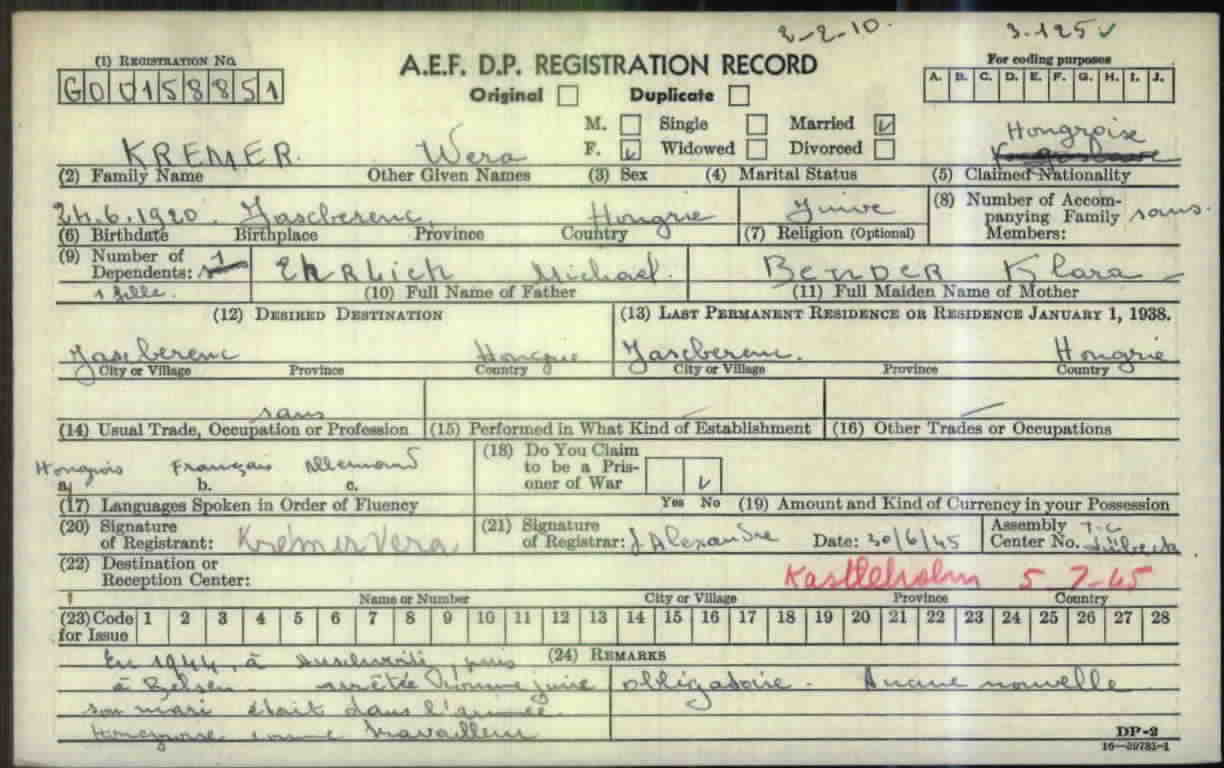 2-2-10. 3-125 ✓
(1) REGISTRATION No.
G00158851
A.E.F. D.P. REGISTRATION RECORD
Original ☐ Duplicate ☐
For coding purposes
A. B. C. D. E. F. G. H. I. J.
M. ☐ Single ☐ Married ☑
F. ☑ Widowed ☐ Divorced ☐
Hongroise
KREMER. Wera
(2) Family Name Other Given Names (3) Sex (4) Marital Status (5) Claimed Nationality
24.6.1920. Jascberenc. Hongrie Juive
(6) Birthdate Birthplace Province Country (7) Religion (Optional)
(8) Number of Accompanying Family Members: sans.
(9) Number of Dependents: 1
1 fille.
EhRLich Michael. BENDER Klara
(10) Full Name of Father (11) Full Maiden Name of Mother
(12) DESIRED DESTINATION (13) LAST PERMANENT RESIDENCE OR RESIDENCE JANUARY 1, 1938.
Jascberenc Hongrie Jascberenc. Hongrie
City or Village Province Country City or Village Province Country
sans
(14) Usual Trade, Occupation or Profession (15) Performed in What Kind of Establishment (16) Other Trades or Occupations
Hongrois Français Allemand
a. b. c.
(17) Languages Spoken in Order of Fluency
(18) Do You Claim to be a Prisoner of War ☐ ☑
Yes No (19) Amount and Kind of Currency in your Possession
(20) Signature of Registrant: Kremer Vera
(21) Signature of Registrar: J Alexandre Date: 30/6/45
Assembly Center No. T.C. Lübeck
(22) Destination or Reception Center: Kastleholm 5 7-45
Name or Number City or Village Province Country
(23) Code for Issue 1 2 3 4 5 6 7 8 9 10 11 12 13 14 15 16 17 18 19 20 21 22 23 24 25 26 27 28
(24) REMARKS
En 1944, à Auschwitz, puis
à Belsen. arrêtée comme juive obligatoire. Aucune nouvelle
son mari était dans l'armée
Hongroise comme travailleur
DP-2
16—39781-1